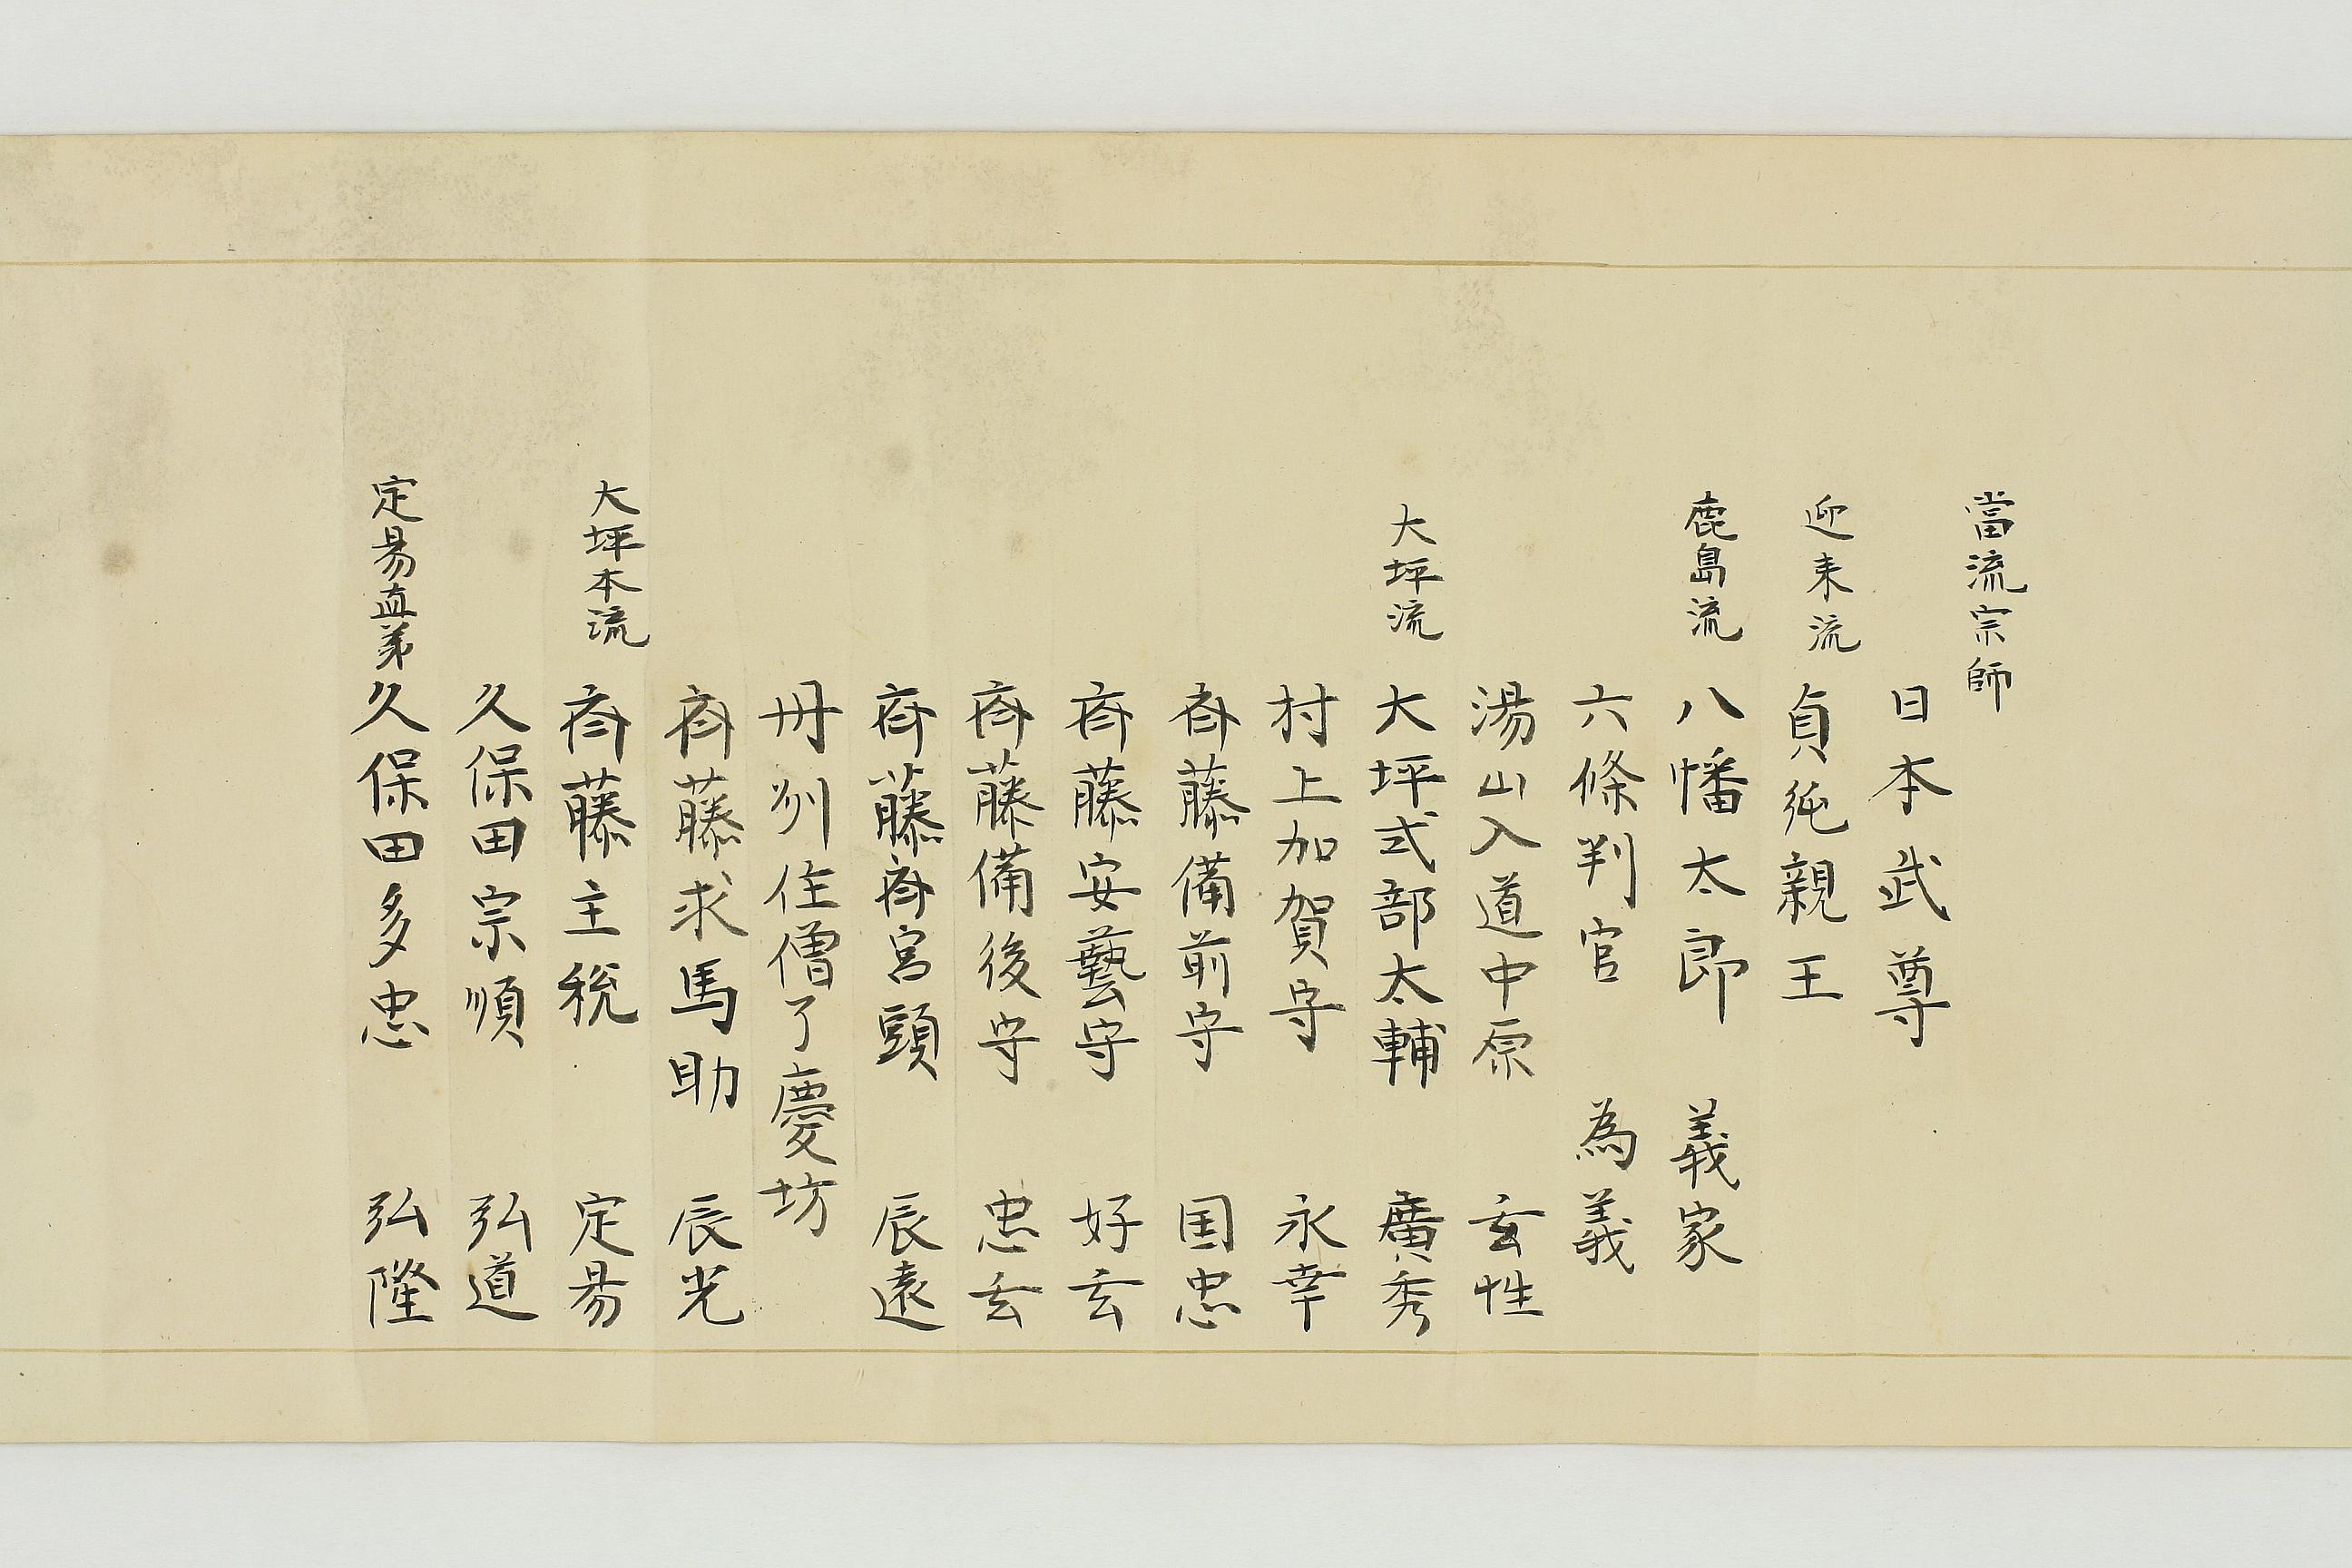 當流宗師
日本武尊
迎来流 貞純親王
鹿島流 八幡太郎 義家
六條判官 為義
湯山入道中原 玄性
大坪流 大坪式部太輔 廣秀
村上加賀守 永幸
斉藤備前守 国忠
斉藤安藝守 好玄
斉藤備後守 忠玄
斉藤斉宮頭 辰遠
丹州住僧了慶坊
斉藤求馬助 辰光
大坪本流 斉藤主税 定易
久保田宗順 弘道
定易直弟 久保田多忠 弘隆